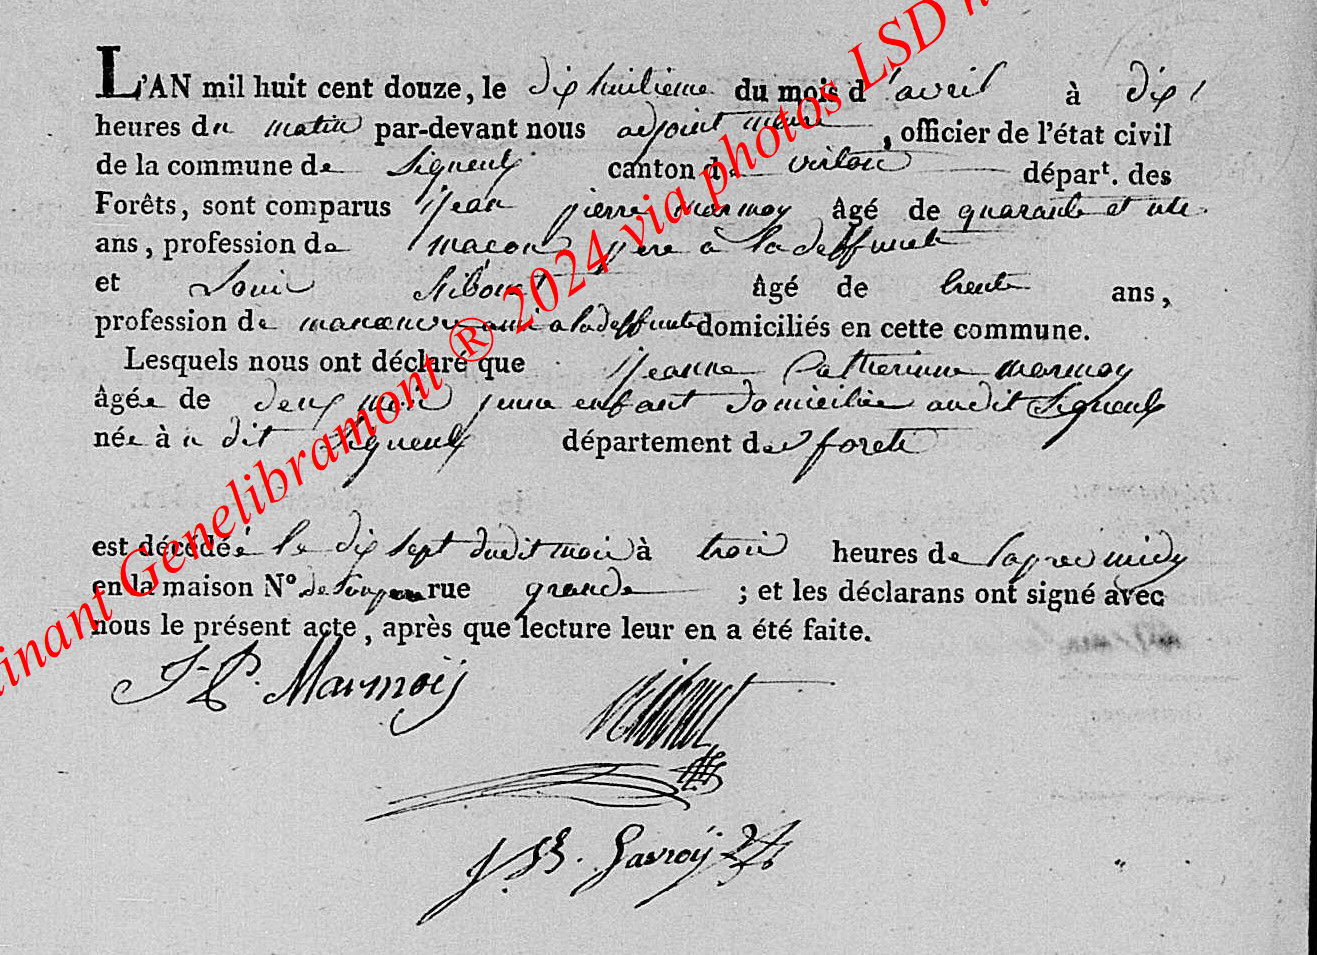 L'AN mil huit cent douze, le dix huitieme du mois d'avril à dix
heures du matin par-devant nous adjoint maire, officier de l'état civil
de la commune de Signeulx canton de virton dépar.t des
Forêts, sont comparus Jean pierre marmoy âgé de quarante et un
ans, profession de maçon pere a la deffunte
et Louis Ribouet âgé de trente ans,
profession de manœuvre ami a la deffunte domiciliés en cette commune.
Lesquels nous ont déclaré que Jeanne Catherinne marmoy
âgée de deux mois enfant domiciliée audit Signeulx
née à dit Signeulx département de foret
est décédée le dix sept dudit mois à trois heures de l'apres midy
en la maison N° rue grande ; et les déclarans ont signé avec
nous le présent acte, après que lecture leur en a été faite.
J P. Marmoij
J. B. Gavroij
tinant Genelibramont ® 2024 via photos LSD